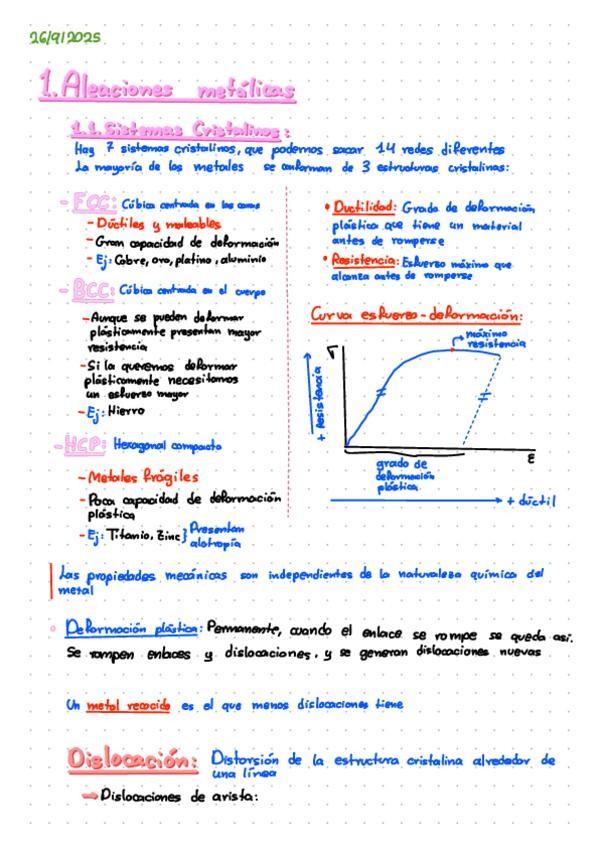 26/9/2025
1. Aleaciones metálicas
1.1. Sistemas Cristalinos:
Hay 7 sistemas cristalinos, que podemos sacar 14 redes diferentes
La mayoría de los metales se conforman de 3 estructuras cristalinas:
- FCC: Cúbica centrada en las caras
- Dúctiles y maleables
- Gran capacidad de deformación
- Ej: Cobre, oro, platino, aluminio
- BCC: Cúbica centrada en el cuerpo
- Aunque se pueden deformar
plásticamente presentan mayor
resistencia
- Si la queremos deformar
plásticamente necesitamos
un esfuerzo mayor
- Ej: Hierro
- HCP: Hexagonal compacta
- Metales frágiles
- Poca capacidad de deformación
plástica
- Ej: Titanio, Zinc } Presentan
alotropía
• Ductilidad: Grado de deformación
plástica que tiene un material
antes de romperse
• Resistencia: Esfuerzo máximo que
alcanza antes de romperse
Curva esfuerzo-deformación:
máxima
resistencia
σ
+ Resistencia
ε
grado de
deformación
plástica
+ dúctil
Las propiedades mecánicas son independientes de la naturaleza química del
metal
Deformación plástica: Permanente, cuando el enlace se rompe se queda así.
Se rompen enlaces y dislocaciones, y se generan dislocaciones nuevas
Un metal recocido es el que menos dislocaciones tiene
Dislocación: Distorsión de la estructura cristalina alrededor de
una línea
→ Dislocaciones de arista: